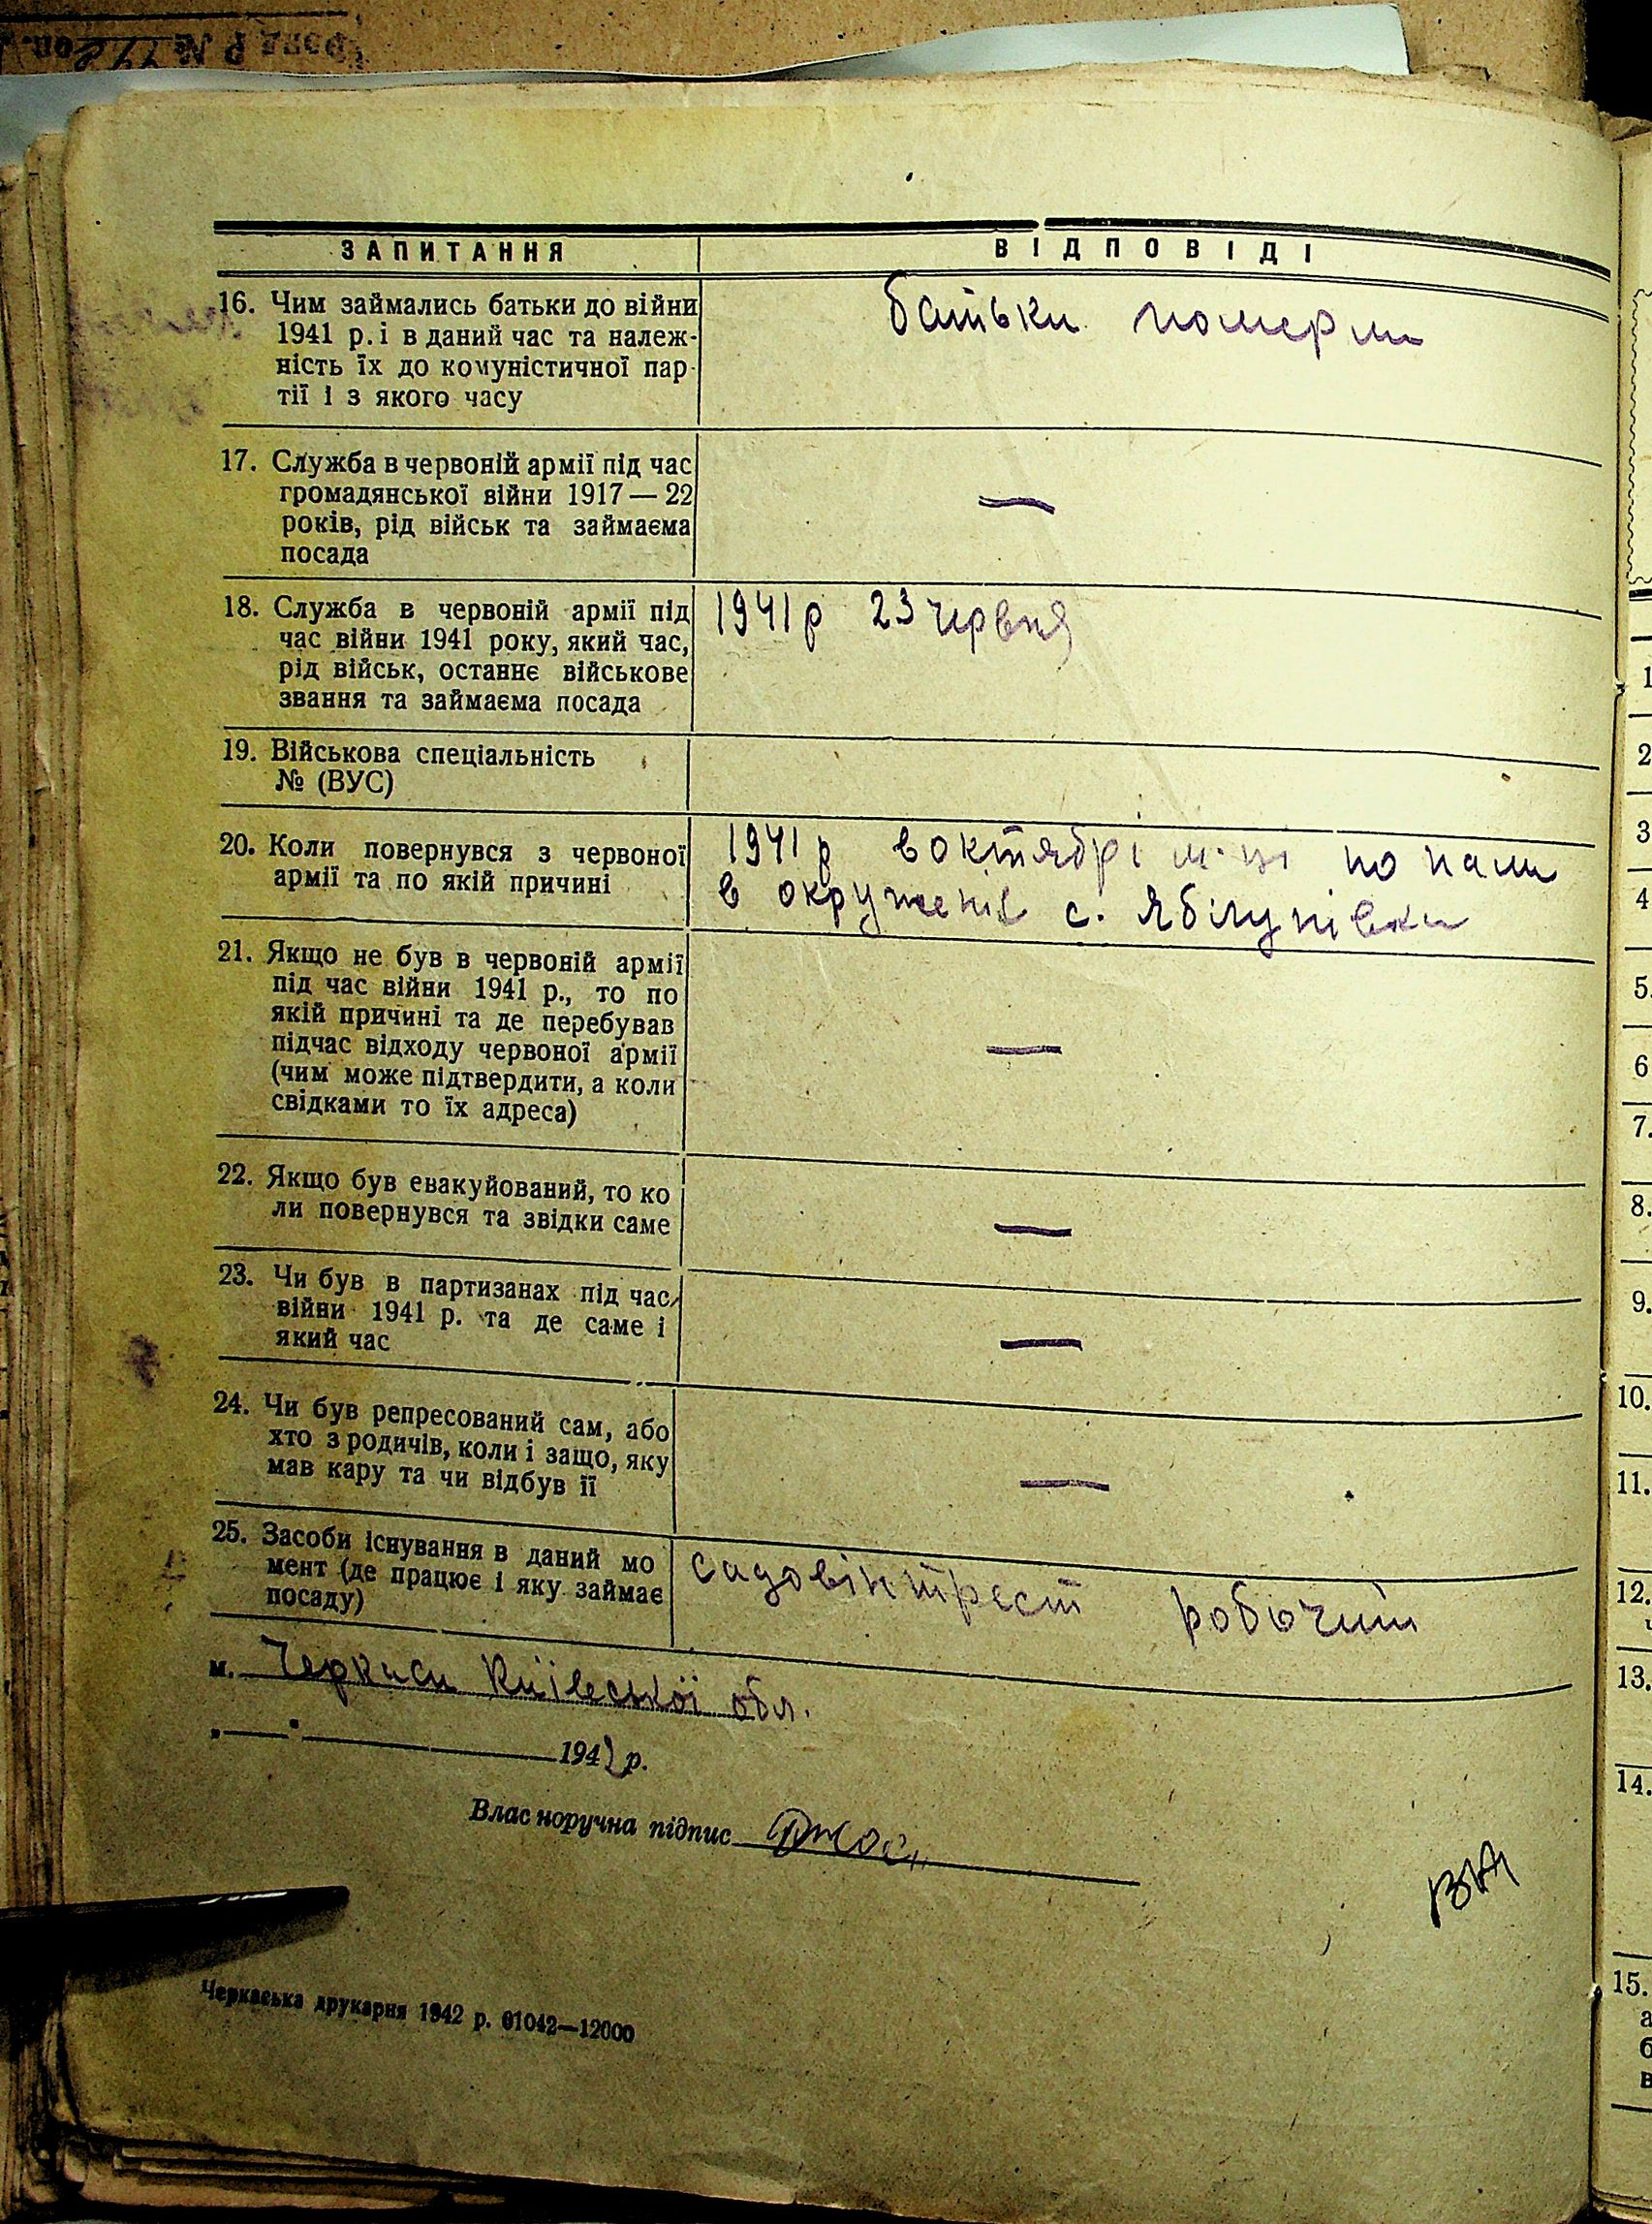 ЗАПИТАННЯ
ВІДПОВІДІ
16. Чим займались батьки до війни
1941 р. і в даний час та належ-
ність їх до комуністичної пар-
тії і з якого часу
батьки померли
17. Служба в червоній армії під час
громадянської війни 1917 — 22
років, рід військ та займаєма
посада
—
18. Служба в червоній армії під
час війни 1941 року, який час,
рід військ, останнє військове
звання та займаєма посада
1941 р 23 червня
19. Військова спеціальність
№ (ВУС)
20. Коли повернувся з червоної
армії та по якій причині
1941 р в октябрі м-ці попали
в окруженіе с. Яблунівки
21. Якщо не був в червоній армії
під час війни 1941 р., то по
якій причині та де перебував
підчас відходу червоної армії
(чим може підтвердити, а коли
свідками то їх адреса)
—
22. Якщо був евакуйований, то ко
ли повернувся та звідки саме
—
23. Чи був в партизанах під час
війни 1941 р. та де саме і
який час
—
24. Чи був репресований сам, або
хто з родичів, коли і защо, яку
мав кару та чи відбув її
—
25. Засоби існування в даний мо
мент (де працює і яку займає
посаду)
садовінтрест робочий
м. Черкаси Київської обл.
„ — " — 1942 р.
Власноручна підпис
Черкаська друкарня 1942 р. 01042—12000
1
2
3
4
5.
6
7.
8.
9.
10.
11.
12.
13.
14.
15.